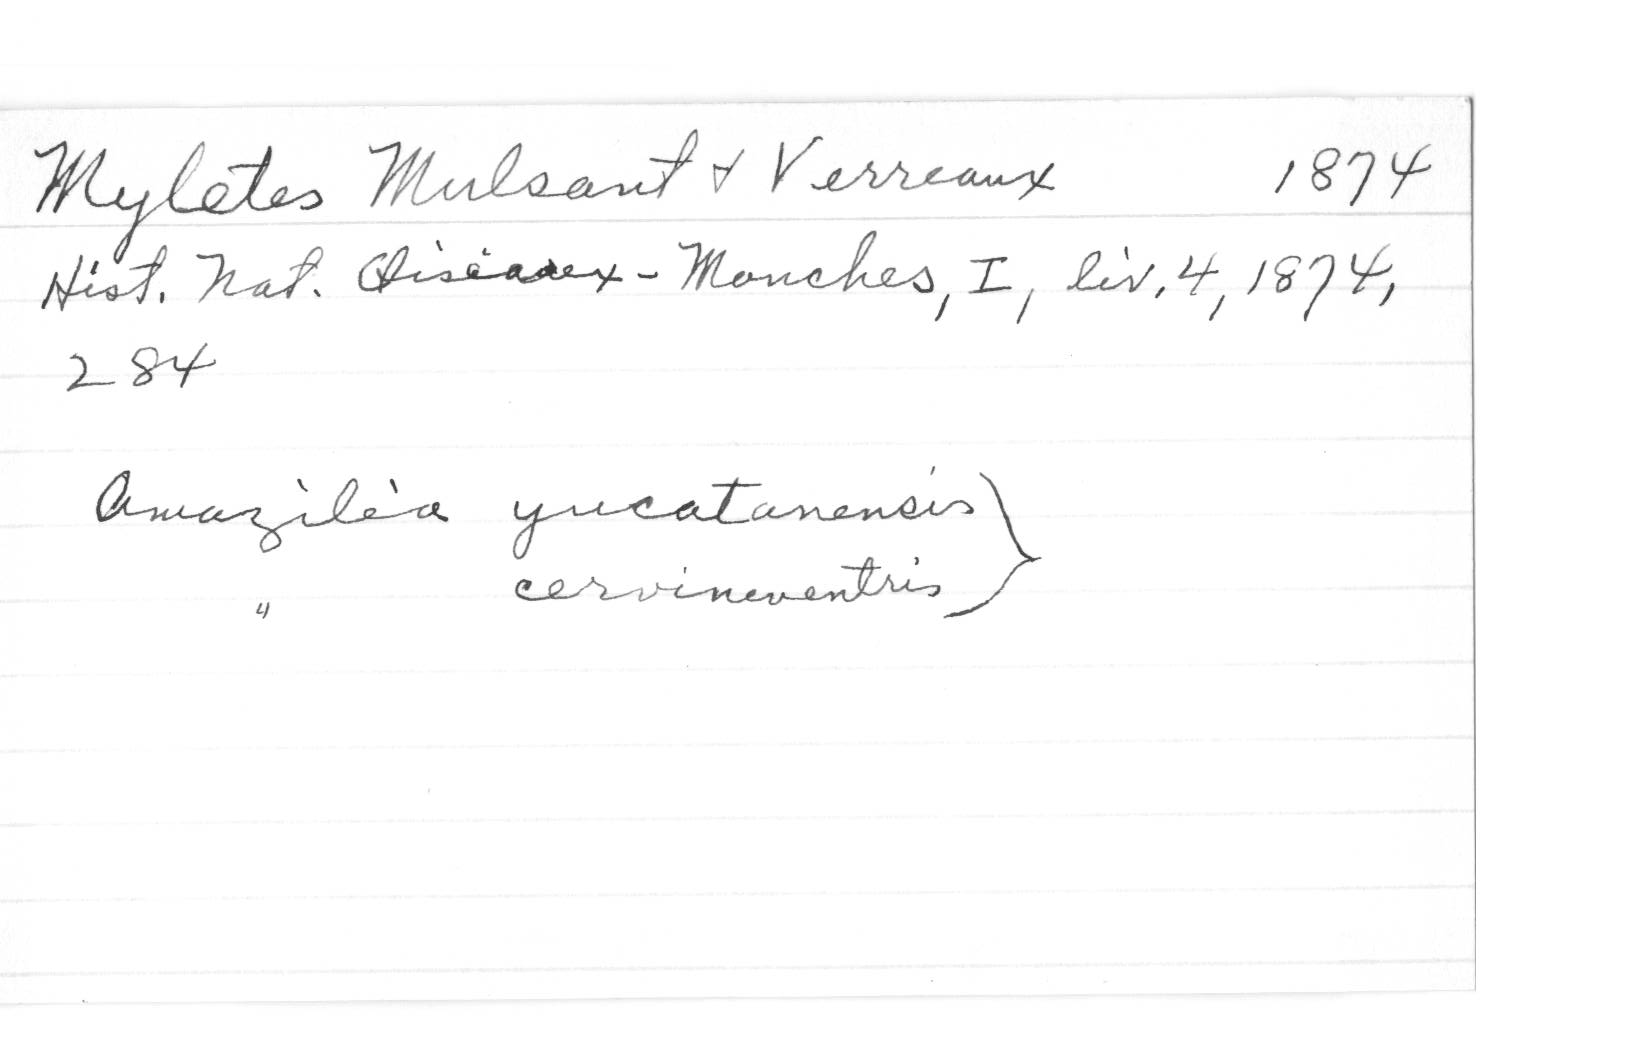 Myletes Mulsant & Verreaux 1874
Hist. Nat. Oiseaux-Mouches, I, liv. 4, 1874,
284
Amazilia yucatanensis }
" cervineventris